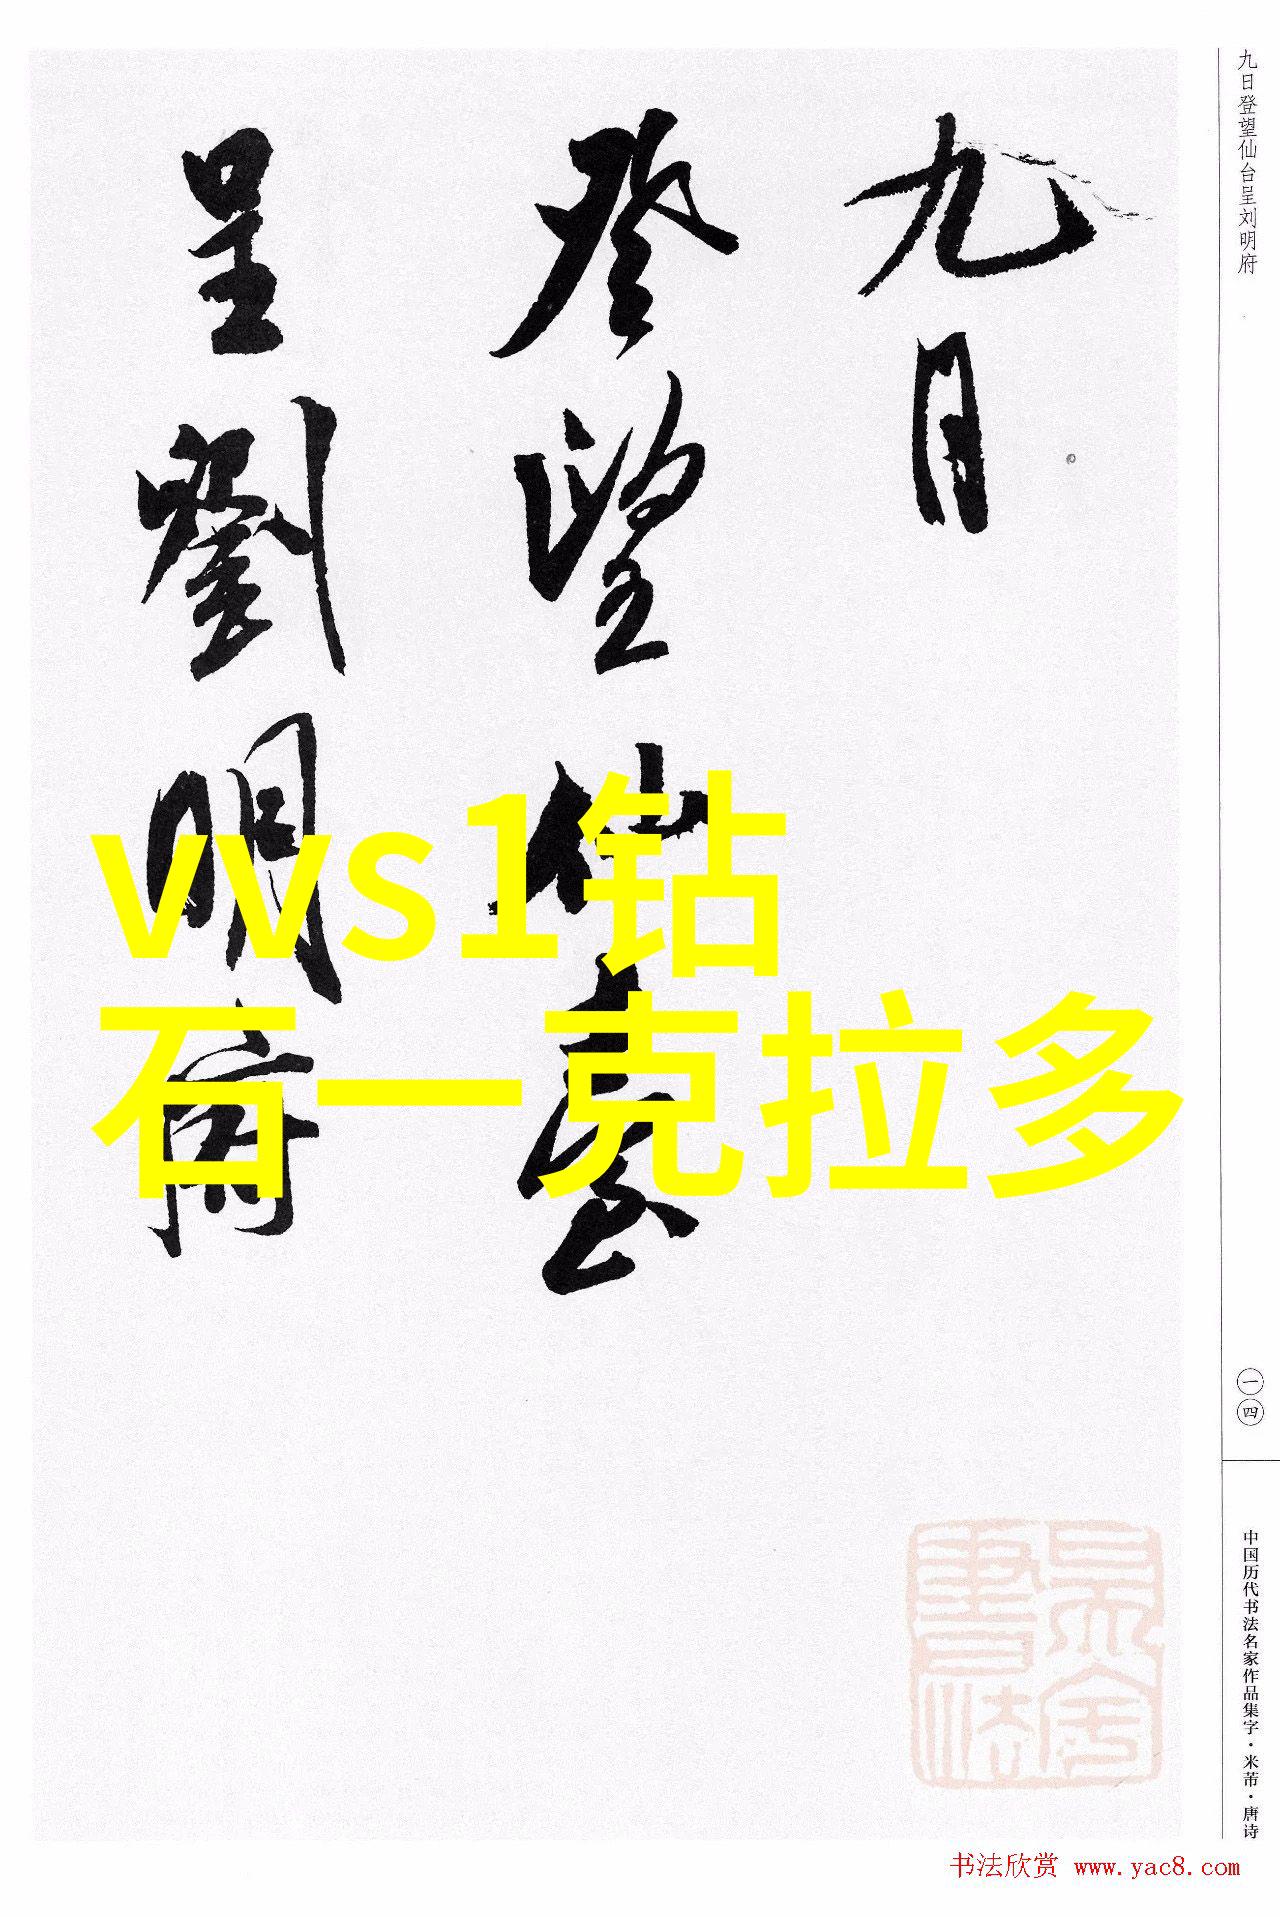 九日
登望仙臺
呈劉明府
vvs1钻
石一克拉多
九日登望仙台呈刘明府
一四
中国历代书法名家作品集字·米芾·唐诗
书法欣赏 www.yac8.com